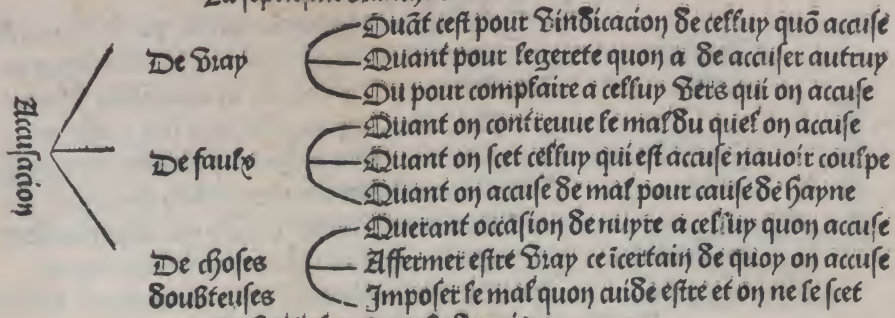 Accusacion
De vray
Quāt cest pour vindicacion de celluy quō accuse
Quant pour legerete quon a de accuser autruy
Ou pour complaire a celluy vers qui on accuse
De faulx
Quant on contreuue le mal du quel on accuse
Quant on scet celluy qui est accuse nauoir coulpe
Quant on accuse de mal pour cause de hayne
De choses
doubteuses
Querant occasion de nuyre a celluy quon accuse
Affermer estre vray ce īcertain de quoy on accuse
Imposer le mal quon cuide estre et on ne le scet